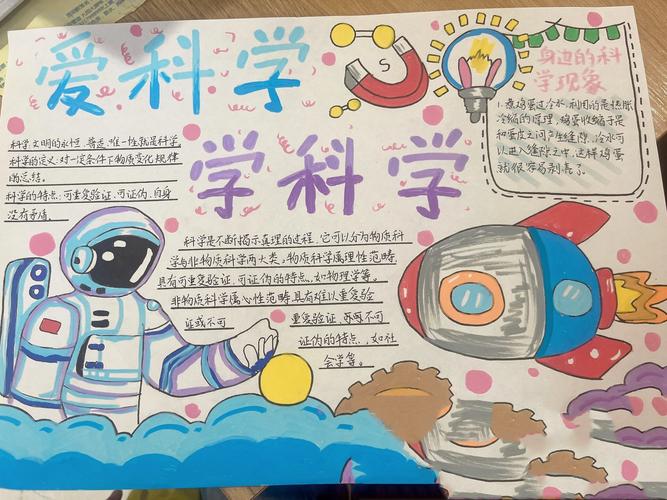 爱科学
S
身边的科
学现象
1.煮鸡蛋过冷水,利用的是热胀
冷缩的原理,鸡蛋收缩于是
和蛋皮之间产生缝隙,冷水可
以进入缝隙之中,这样鸡蛋
就很容易剥壳了。
科学文明的永恒、普适、唯一性就是科学。
科学的定义:对一定条件下物质变化规律
的总结。
科学的特点:可重复验证、可证伪、自身
没有矛盾。
学科学
科学是不断揭示真理的过程,它可以分为物质科
学与非物质科学两大类,物质科学属理性范畴,
具有可重复验证、可证伪的特点,如物理学等。
非物质科学属心性范畴,具有难以重复验
证或不可 重复验证,亦不可
证伪的特点,如社
会学等。